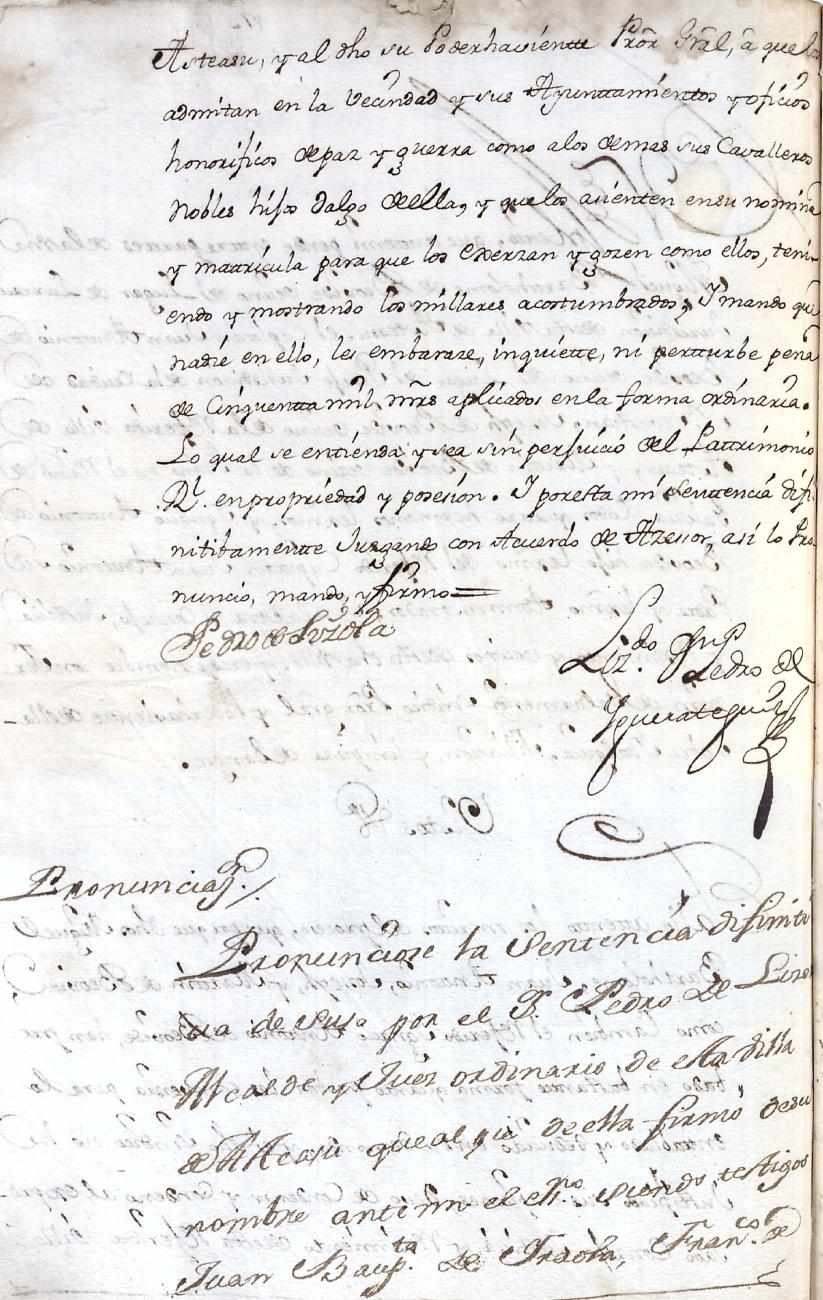 Asteasu, y al dho su Poderhaviente Pror Gral, â que los
admitan en la vecindad y sus Ayuntamientos y oficios
honorificos de paz y guerra como alos demas sus Cavalleros
Nobles hijos dalgo della, y que los asienten en su nomina
y matricula para que los exerzan y gozen como ellos, teni-
endo y mostrando los millares acostumbrados; Y mando que
nadie en ello, les embaraze, inquiette, ni perturbe pena
de Cinquenta mil mrs aplicados en la forma ordinaria.
Lo qual se entienda y sea sin perjuicio del Patrimonio
Rl. en propriedad y posesion. Y por esta mi Sentencia difi-
nitibamente Juzgando con Acuerdo de Asesor, asi lo Pro-
nuncio, mando, y firmo=
Pedro de Lizola
Lizdo Dn Pedro de
Yguerategui
Pronunciaon.
Pronunciose la Sentencia difiniti
va de suso por el Sr. Pedro de Lizo
Alcalde y Juez ordinario de esta villa
de Asteasu que al pie de ella firmó de su
nombre ante mi el esno. siendo testigos
Juan Baupta. de Franco. de